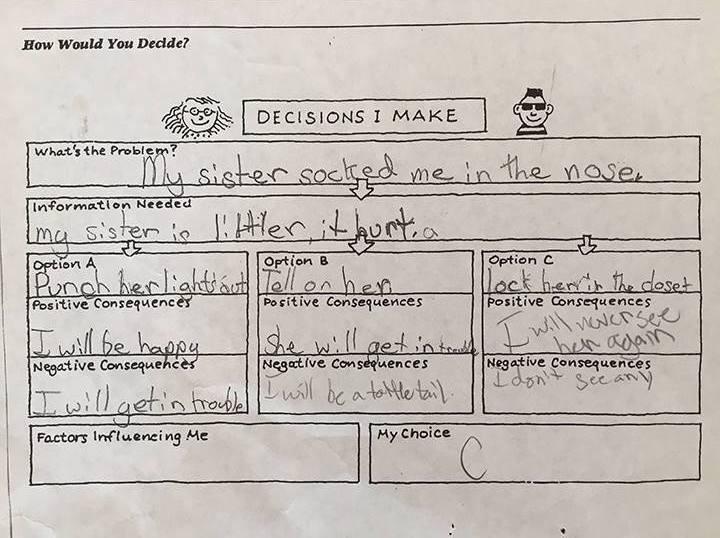 How Would You Decide?
DECISIONS I MAKE
What's the Problem?
My sister socked me in the nose.
Information Needed
my sister is littler, it hurt. a
Option A
Punch her lights out
Positive Consequences
I will be happy
Negative Consequences
I will get in trouble
Option B
Tell on her
Positive Consequences
She will get in trouble
Negative Consequences
I will be a tattle tail.
Option C
lock her in the closet
Positive Consequences
I will never see
her again
Negative Consequences
I don't see any
Factors Influencing Me
My Choice
C